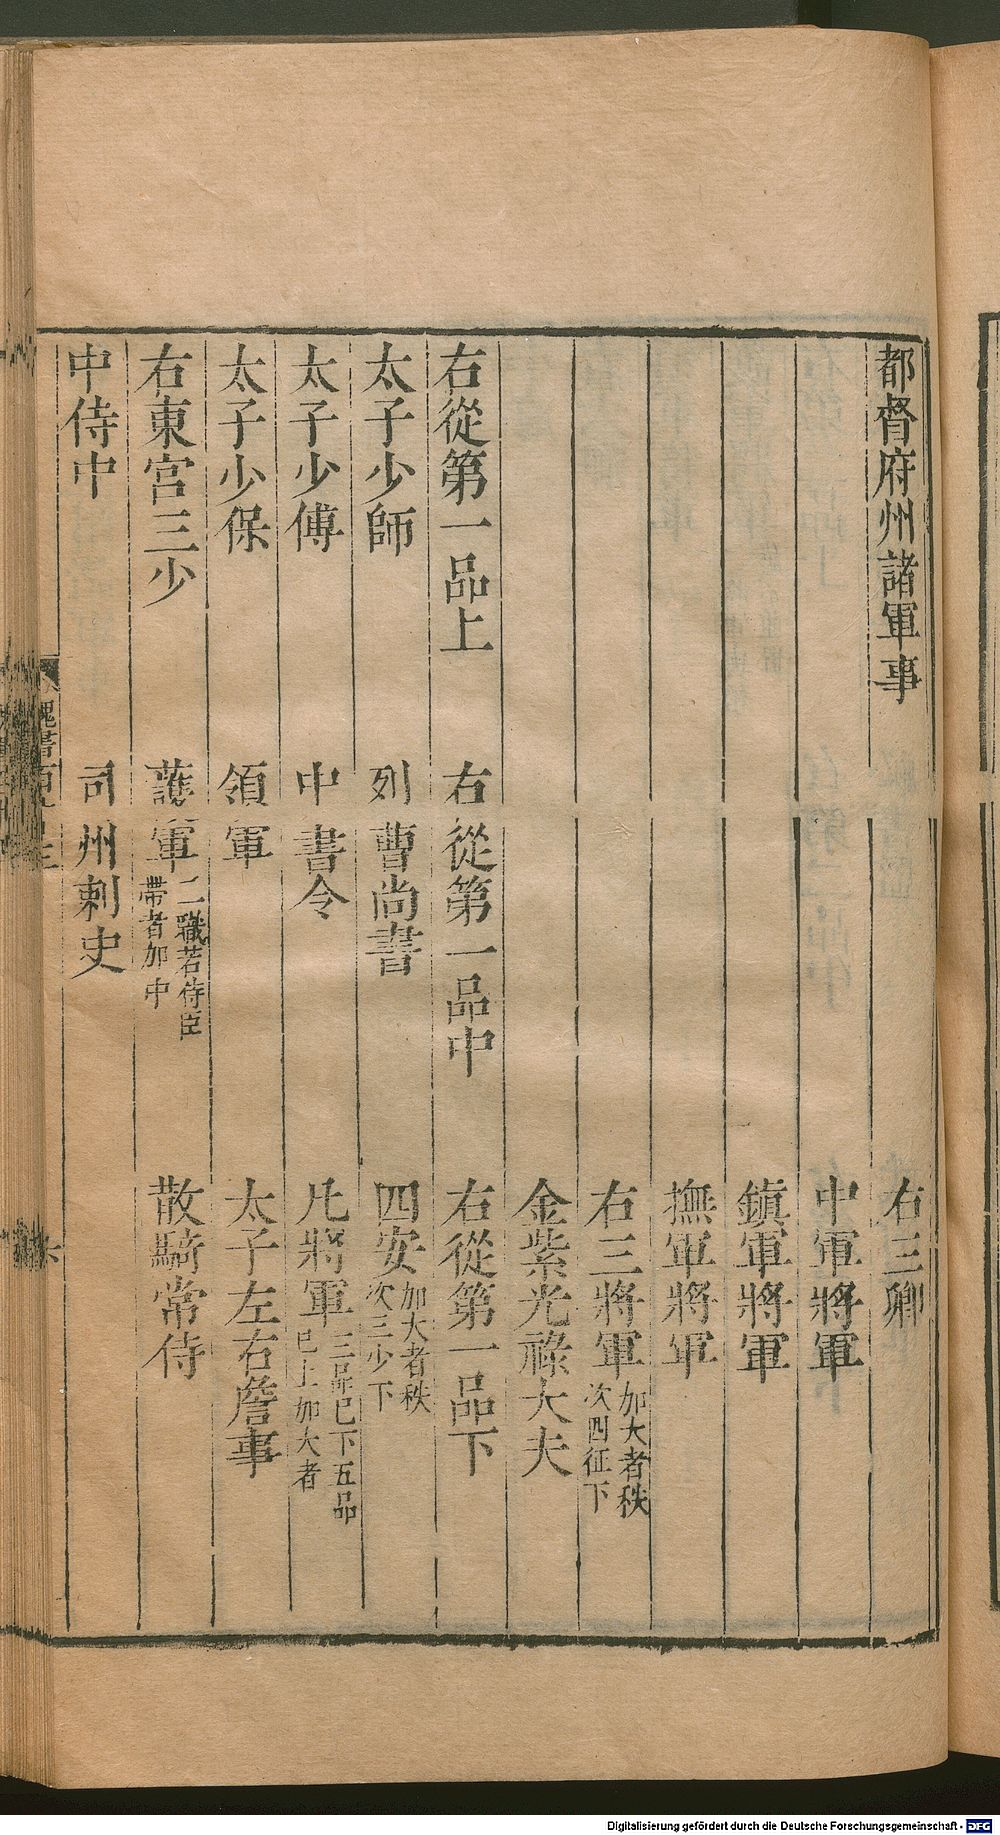 都督府州諸軍事　右三卿
中軍將軍
鎮軍將軍
撫軍將軍
右三將軍加大者秩次四征下
金紫光祿大夫
右從第一品上　右從第一品中　右從第一品下
太子少師　列曹尚書　四安加大者秩次三少下
太子少傅　中書令　凡將軍三品已下五品已上加大者
太子少保　領軍　太子左右詹事
右東宮三少　護軍二職若侍臣帶者加中　散騎常侍
中侍中　司州刺史
魏書百
Digitalisierung gefördert durch die Deutsche Forschungsgemeinschaft - DFG